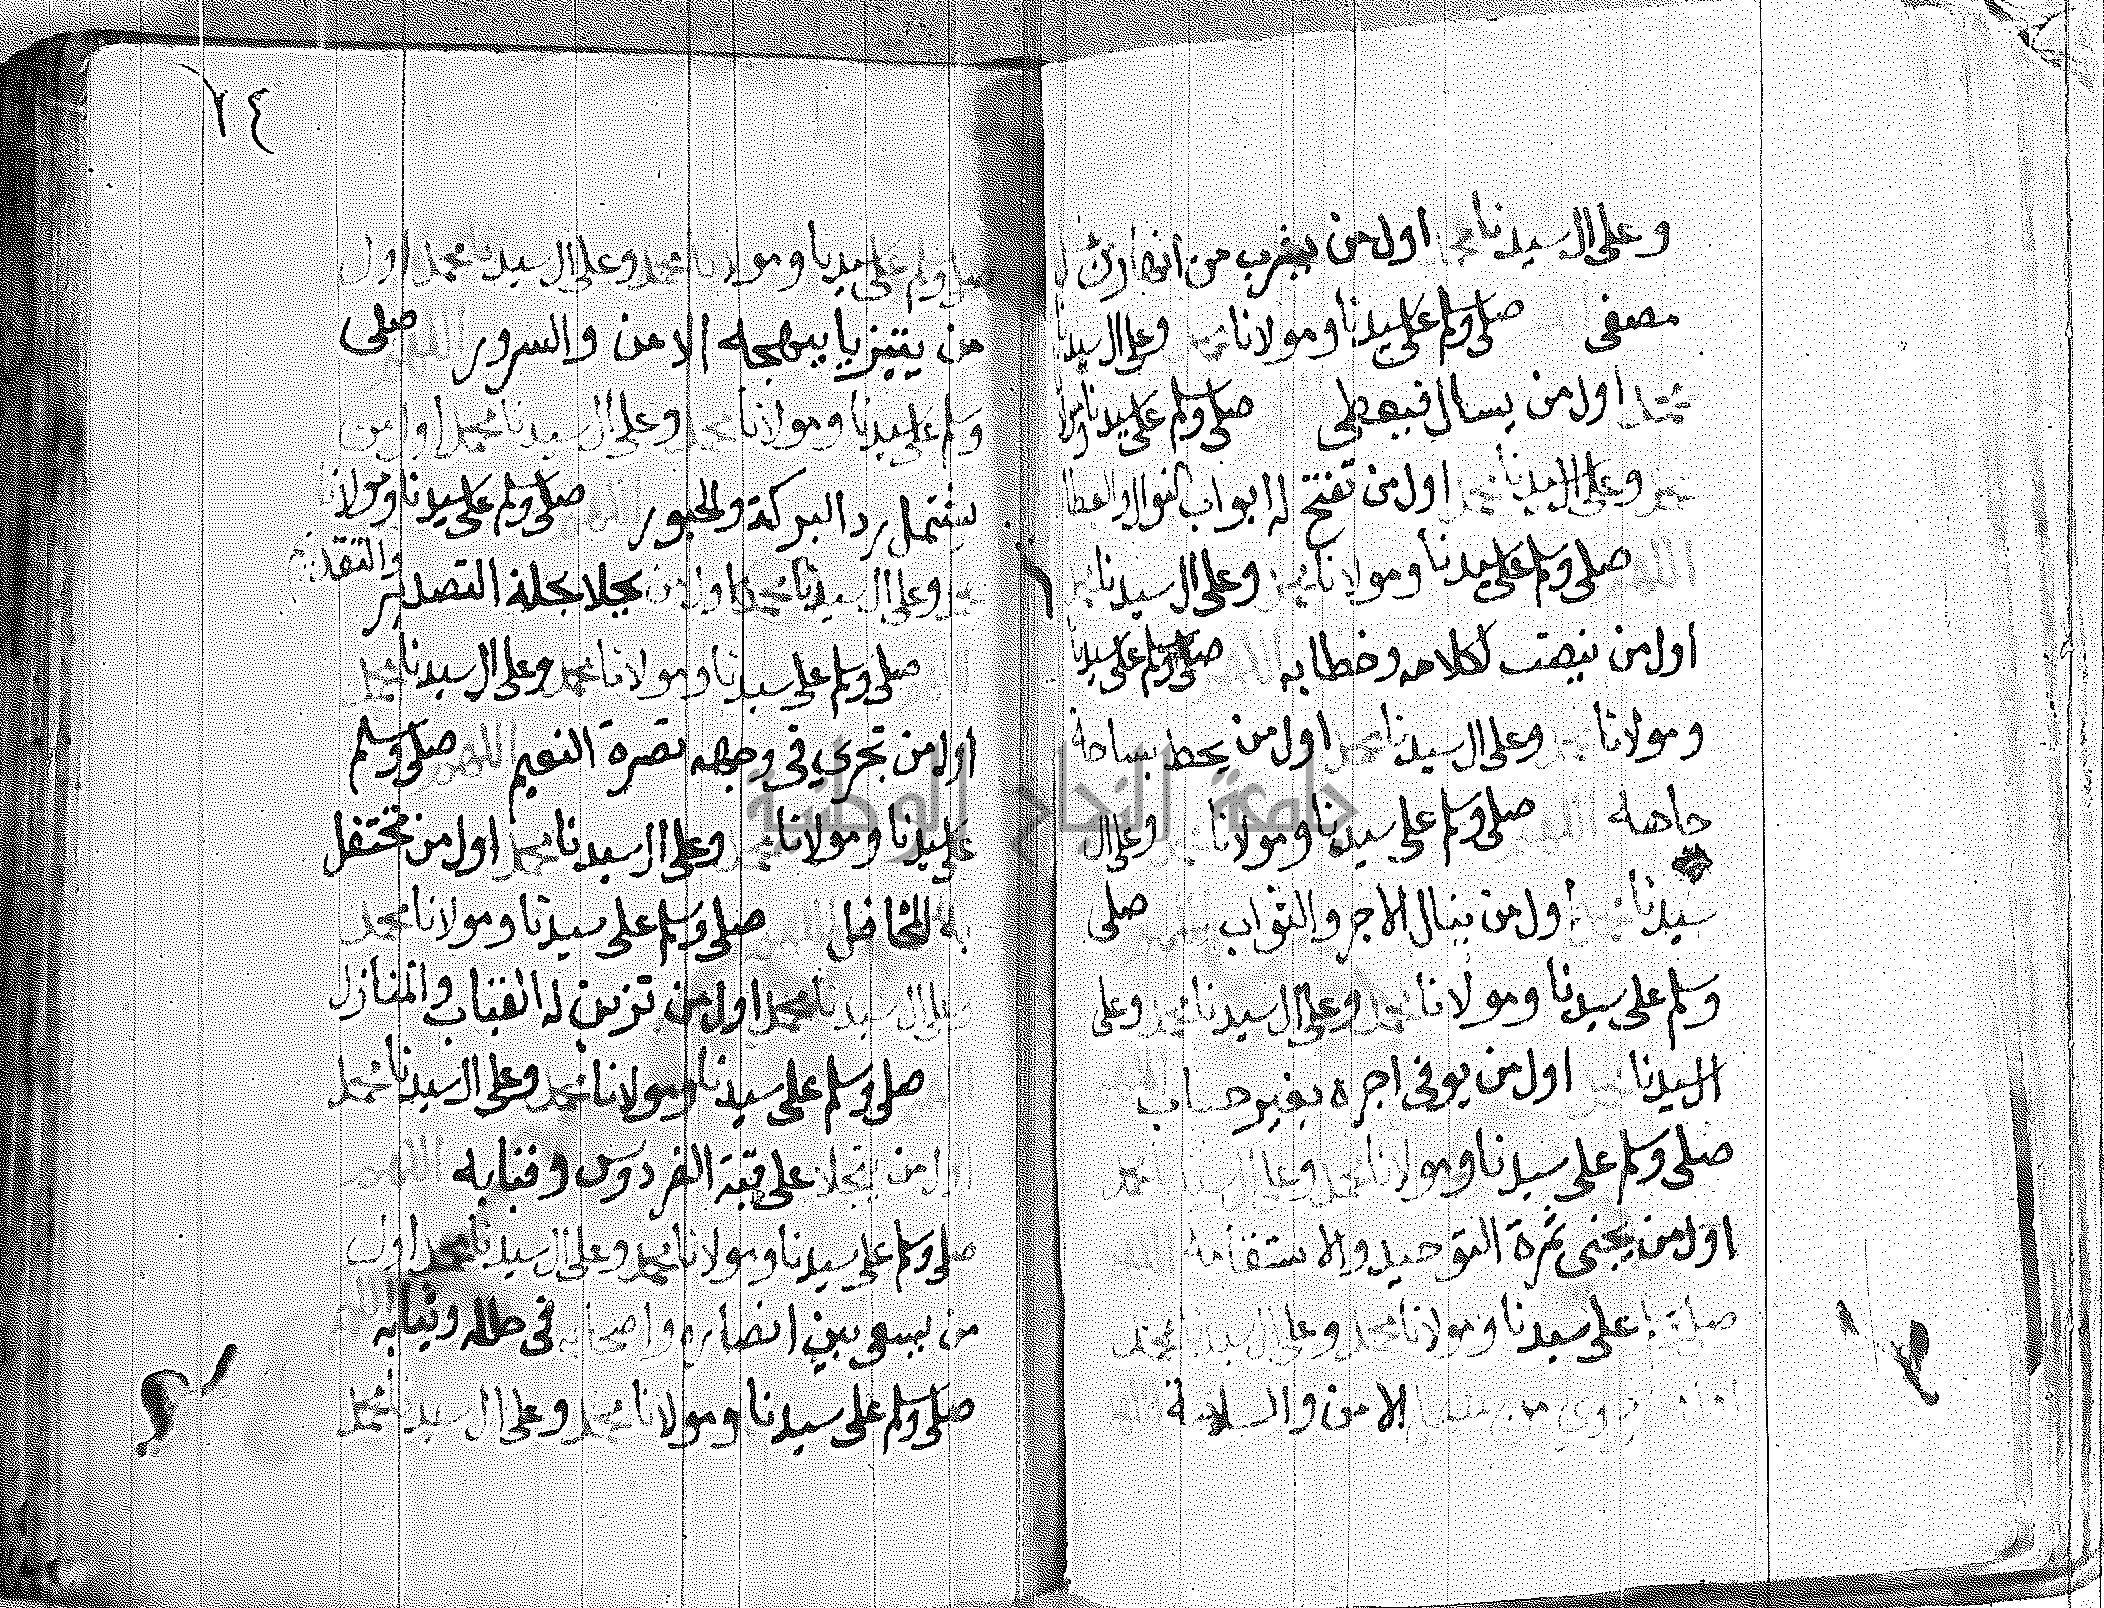 وعلى ال سيدنا محمد اول من يقرب من
مصفى صلى وسلم على سيدنا ومولانا محمد وعلى ال سيدنا
محمد اول من يسال فيعطى صلى وسلم على سيدنا ومولانا
محمد وعلى ال سيدنا محمد اول من تفتح له ابواب النوال والعطا
اللهم صلى وسلم على سيدنا ومولانا محمد وعلى ال سيدنا محمد
اول من ينصت لكلامه وخطابه اللهم صلى وسلم على سيدنا
ومولانا محمد وعلى ال سيدنا محمد اول من يحط بساحة
جاهه اللهم صلى وسلم على سيدنا ومولانا محمد وعلى ال
سيدنا محمد اول من ينال الاجر والثواب اللهم صلى
وسلم على سيدنا ومولانا محمد وعلى ال سيدنا محمد وعلى
ال سيدنا محمد اول من يوفى اجره بغير حساب
صلى وسلم على سيدنا ومولانا محمد وعلى ال سيدنا محمد
اول من يجنى ثمرة التوحيد والاستقامة
صلى وسلم على سيدنا ومولانا محمد وعلى ال سيدنا محمد
الامن والسلامة
١٤
صلى وسلم على سيدنا ومولانا محمد وعلى ال سيدنا محمد اول
من يتزيا ببهجة الامن والسرور اللهم صلى
وسلم على سيدنا ومولانا محمد وعلى ال سيدنا محمد اول من
يشتمل برد البركة والحبور اللهم صلى وسلم على سيدنا ومولانا
محمد وعلى ال سيدنا محمد اول من يجلا بحلة التصدير والتقديم
صلى وسلم على سيدنا ومولانا محمد وعلى ال سيدنا محمد
اول من تجري في وجهه نضرة النعيم اللهم صلى وسلم
على سيدنا ومولانا محمد وعلى ال سيدنا محمد اول من تحتفل
به المحافل اللهم صلى وسلم على سيدنا ومولانا محمد
وعلى ال سيدنا محمد اول من تزين له القباب والمنازل
صلى وسلم على سيدنا ومولانا محمد وعلى ال سيدنا محمد
اول من يتجلا على قبة الفردوس وقبابه اللهم
صلى وسلم على سيدنا ومولانا محمد وعلى ال سيدنا محمد اول
من يسعى بين انصاره واصحابه في حلله وثيابه اللهم
صلى وسلم على سيدنا ومولانا محمد وعلى ال سيدنا محمد
جامعة النجاح الوطنية